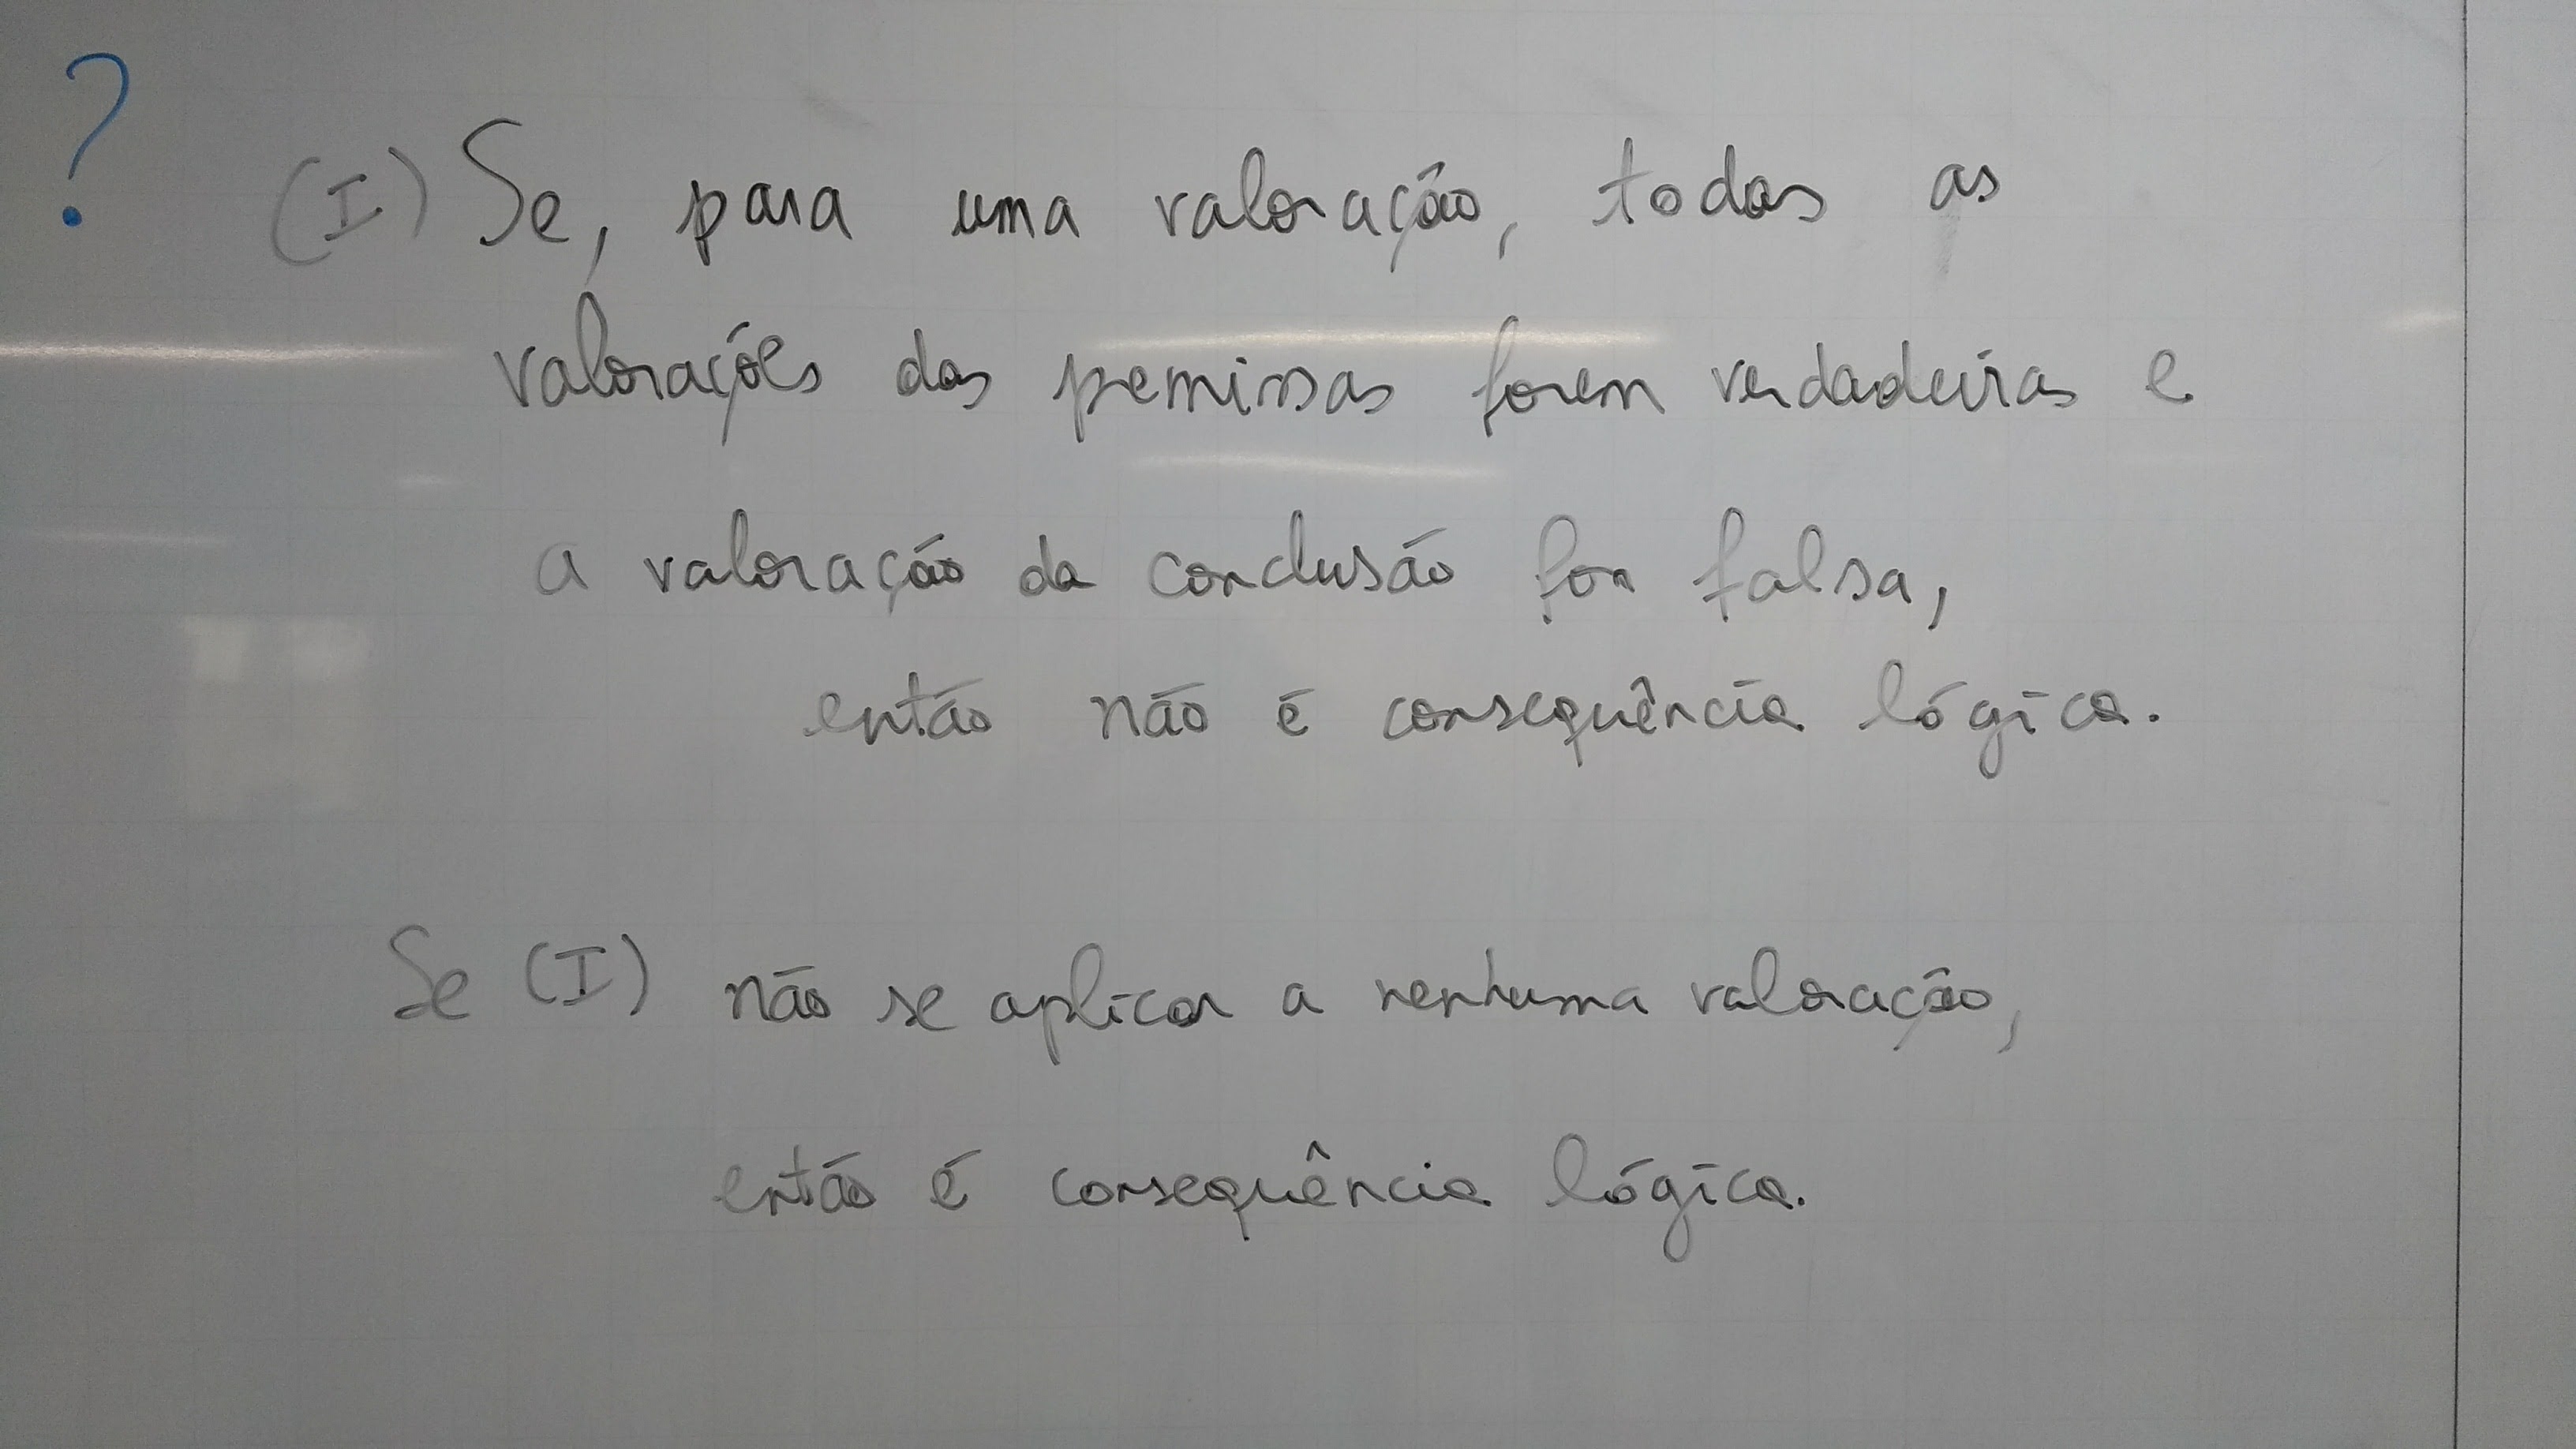 ?
(I) Se, para uma valoração, todas as
valorações das premissas forem verdadeiras e
a valoração da conclusão for falsa,
então não é consequência lógica.
Se (I) não se aplicar a nenhuma valoração,
então é consequência lógica.